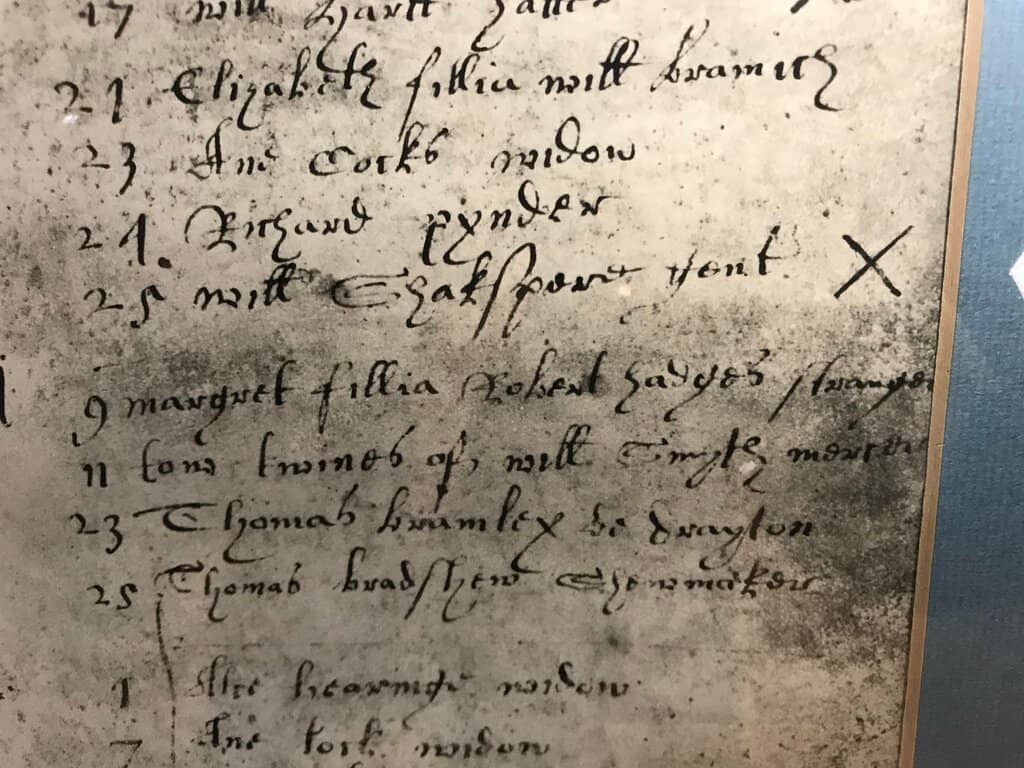 17 will Hartt hatter
21 Elizabeth fillia will bramich
23 Ane Cocks widow
24 Richard pynder
25 will Shakspere gent X
9 margret fillia Robert hadges stranger
11 tow twines of will Smyth mercer
23 Thomas brumley de drayton
25 Thomas bradshew Shewmaker
1 Alce hearinge widow
7 Ane widow